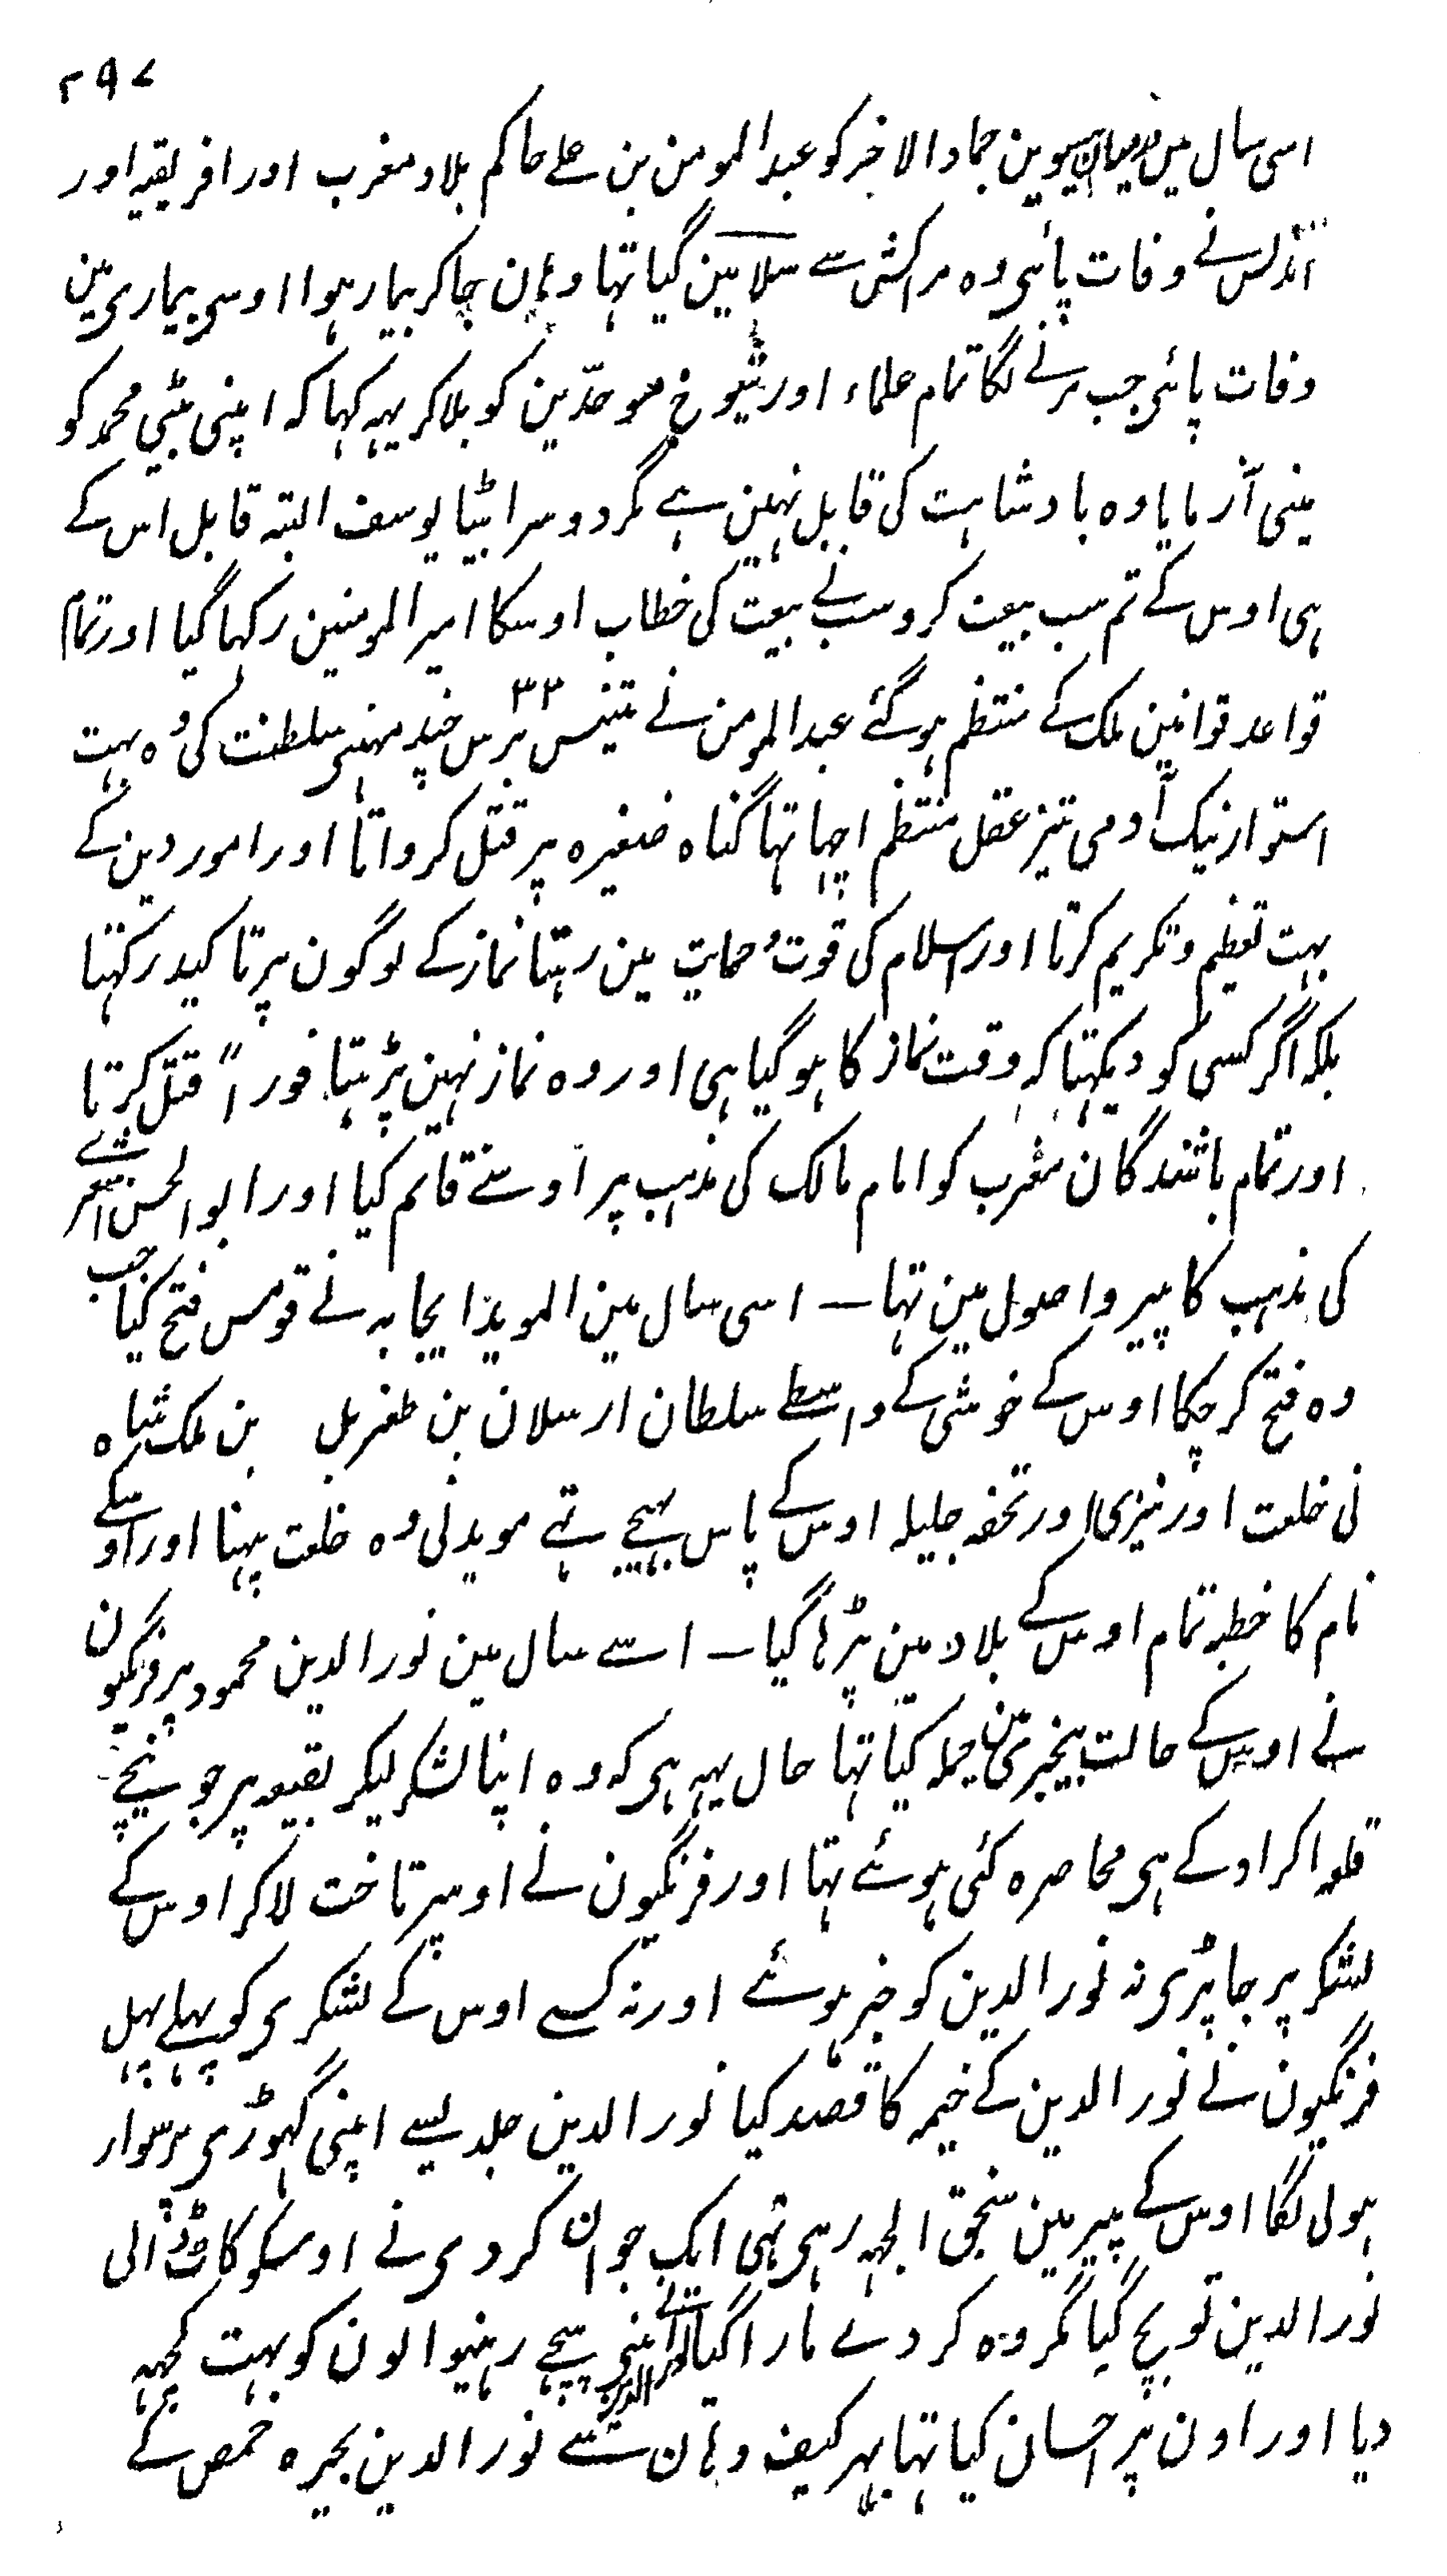 ۲۹۷
اسی سال میں درمیان بیسوین جمادالاخر کو عبدالمومن بن علے حاکم بلاد مغرب اور افریقیہ اور
اندلس نے وفات پائی وہ مراکش سے سلا مین گیا تہا وہان جاکر بیمار ہوا اوسی بیماری مین
وفات پائی جب مرنے لگا تمام علماء اور شیوخ موحدّین کو بلاکر یہہ کہا کہ اپنی بیٹی محمد کو
مینی آزمایا وہ بادشاہت کی قابل نہین ہے مگر دوسرا بیٹا یوسف البتہ قابل اس کے
ہی اوس کے تم سب بیعت کرو سب نے بیعت کی خطاب اوسکا امیر المومنین رکہا گیا اور تمام
قواعد قوانین ملک کے منتظم ہو گئے عبدالمومن نے تینتیس ۳۳ برس چند مہنہی سلطنت کی وہ بہت
استوار نیک آدمی تیز عقل منتظم اچہا تہا گناہ صغیرہ پر قتل کرواتا اور امور دین کے
بہت تعظیم و تکریم کرتا اور اسلام کی قوت و حمایت مین رہتا نماز کے لوگون پر تاکید رکہتا
بلکہ اگر کسی کو دیکہتا کہ وقت نماز کا ہو گیا ہی اور وہ نماز نہین پڑہتا فوراً قتل کرتا
اور تمام باشندگان مغرب کو امام مالک کی مذہب پر اوسنے قائم کیا اور ابو الحسن اشعرے
کی مذہب کا پیرو اصول مین تہا ـــ اسی سال مین الموید ایجابہ نے قومس فتح کیا جب
وہ فتح کر چکا اوس کے خوشی کے واسطے سلطان ارسلان بن طغربل بن ملک شاہ
نی خلعت اور نیزی اور تحفہ جلیلہ اوس کے پاس بہیجے تہے موید نی وہ خلعت پہنا اور اوسکے
نام کا خطبہ تمام اوس کے بلاد مین پڑہا گیا ـــ اسے سال مین نور الدین محمود پر فرنگیون
نے اوس کے حالت بیخبری مین حملہ کیا تہا حال یہہ ہی کہ وہ اپنا لشکر لیکر بقیعہ پر جو نیچے
قلعہ اکراد کے ہی محاصرہ کئی ہوئے تہا اور فرنگیون نے اوسپر تاخت لاکر اوس کے
لشکر پر جا پڑی نہ نور الدین کو خبر ہوئے اور نہ کسے اوس کے لشکری کو پہلے پہل
فرنگیون نے نور الدین کے خیمہ کا قصد کیا نور الدین جلد یسے اپنی گہوڑی پر سوار
ہولی لگا اوس کے پیر مین سنجق الجہہ رہی تہی ایک جوان کردی نے اوسکو کاٹ ڈالی
نور الدین تو بچ گیا مگر وہ کردے مارا گیا نور الدین نے اپنی پیچے رہنیوالون کو بہت کچہہ
دیا اور اون پر احسان کیا تہا بہر کیف وہان سے نور الدین بحیرہ حمص کے